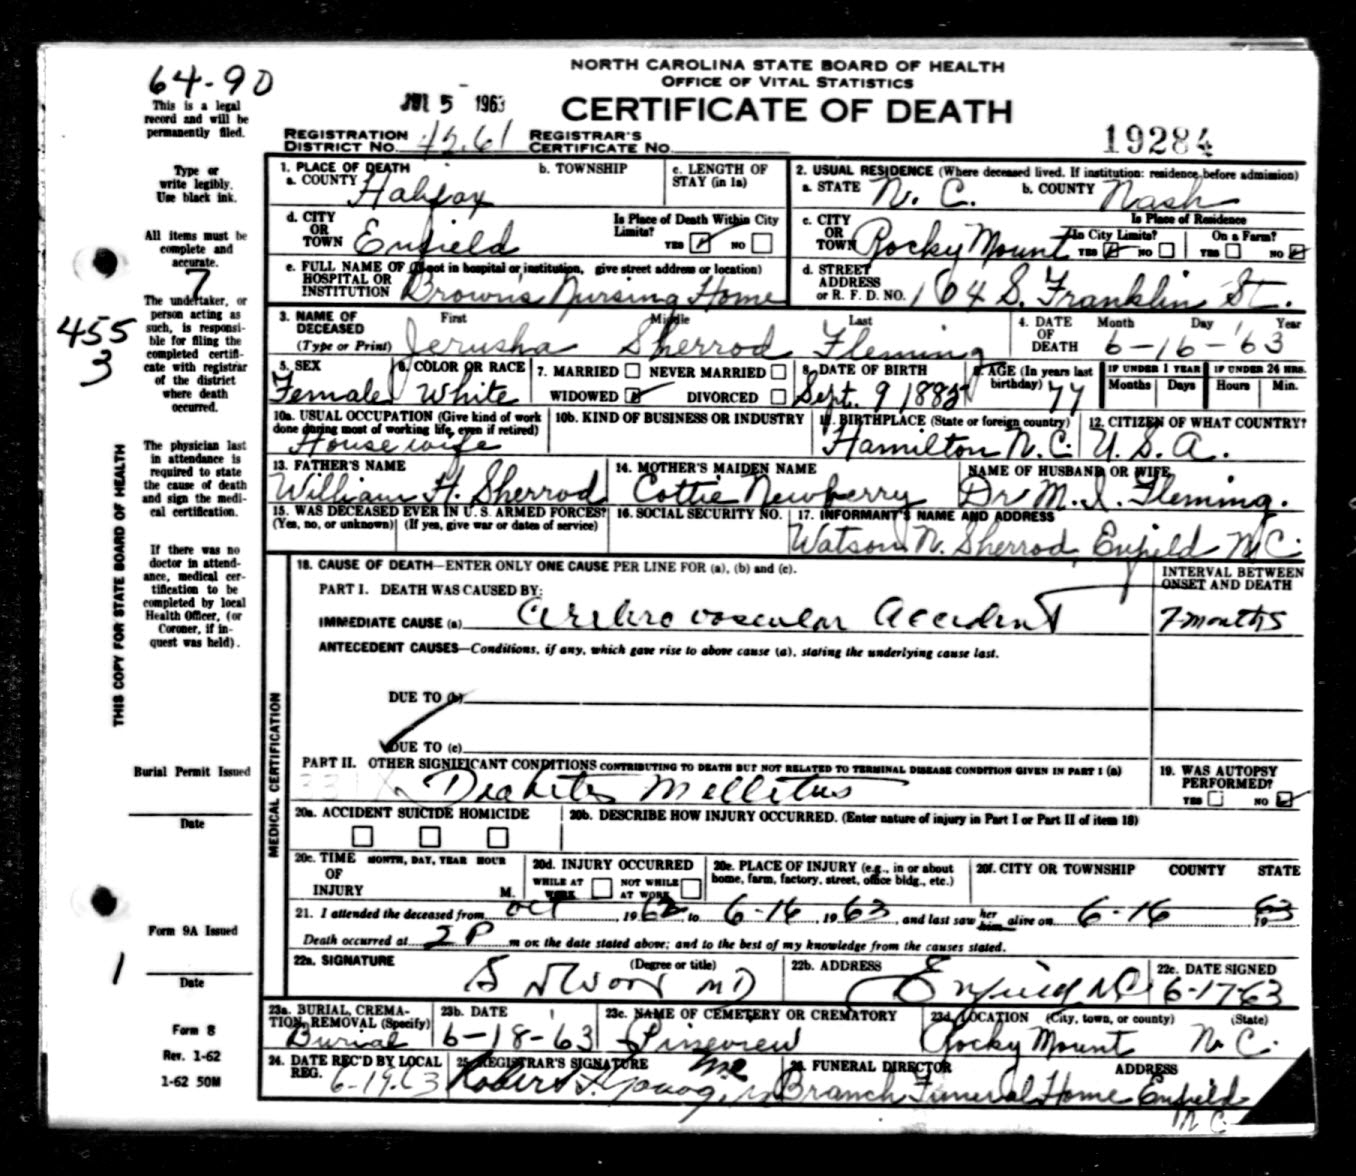 64-90
This is a legal
record and will be
permanently filed.
Type or
write legibly.
Use black ink.
All items must be
complete and
accurate.
7
The undertaker, or
person acting as
such, is responsi-
ble for filing the
completed certifi-
cate with registrar
of the district
where death
occurred.
455
3
The physician last
in attendance is
required to state
the cause of death
and sign the medi-
cal certification.
If there was no
doctor in attend-
ance, medical cer-
tification to be
completed by local
Health Officer, (or
Coroner, if in-
quest was held).
THIS COPY FOR STATE BOARD OF HEALTH
Burial Permit Issued
Date
Form 9A Issued
1
Date
Form 8
Rev. 1-62
1-62 50M
NORTH CAROLINA STATE BOARD OF HEALTH
OFFICE OF VITAL STATISTICS
JUL 5 1963 CERTIFICATE OF DEATH
REGISTRATION DISTRICT NO. 42.61 REGISTRAR'S CERTIFICATE NO. 19284
1. PLACE OF DEATH
a. COUNTY Halifax b. TOWNSHIP c. LENGTH OF STAY (in 1a)
2. USUAL RESIDENCE (Where deceased lived. If institution: residence before admission)
a. STATE N. C. b. COUNTY Nash
d. CITY OR TOWN Enfield Is Place of Death Within City Limits? YES NO
c. CITY OR TOWN Rocky Mount Is Place of Residence In City Limits? YES NO On a Farm? YES NO
e. FULL NAME OF (If not in hospital or institution, give street address or location) HOSPITAL OR INSTITUTION Brown's Nursing Home
d. STREET ADDRESS or R. F. D. NO. 164 S. Franklin St.
3. NAME OF DECEASED (Type or Print) First Middle Last Jerusha Sherrod Fleming
4. DATE OF DEATH Month Day Year 6-16-'63
5. SEX Female 6. COLOR OR RACE White 7. MARRIED NEVER MARRIED WIDOWED DIVORCED
8. DATE OF BIRTH Sept. 9 1885 9. AGE (In years last birthday) 77 IF UNDER 1 YEAR Months Days IF UNDER 24 HRS. Hours Min.
10a. USUAL OCCUPATION (Give kind of work done during most of working life, even if retired) Housewife
10b. KIND OF BUSINESS OR INDUSTRY
11. BIRTHPLACE (State or foreign country) Hamilton N.C.
12. CITIZEN OF WHAT COUNTRY? U. S. A.
13. FATHER'S NAME William H. Sherrod
14. MOTHER'S MAIDEN NAME Cottie Newberry
NAME OF HUSBAND OR WIFE Dr M. I. Fleming.
15. WAS DECEASED EVER IN U. S. ARMED FORCES? (Yes, no, or unknown) (If yes, give war or dates of service)
16. SOCIAL SECURITY NO.
17. INFORMANT'S NAME AND ADDRESS
Watson N. Sherrod, Enfield N.C.
MEDICAL CERTIFICATION
18. CAUSE OF DEATH—ENTER ONLY ONE CAUSE PER LINE FOR (a), (b) and (c).
INTERVAL BETWEEN ONSET AND DEATH
PART I. DEATH WAS CAUSED BY:
IMMEDIATE CAUSE (a) Cerebro vascular Accident 7 months
ANTECEDENT CAUSES—Conditions, if any, which gave rise to above cause (a), stating the underlying cause last.
DUE TO (b)
DUE TO (c)
PART II. OTHER SIGNIFICANT CONDITIONS CONTRIBUTING TO DEATH BUT NOT RELATED TO TERMINAL DISEASE CONDITION GIVEN IN PART I (a)
331X Diabetes Mellitus
19. WAS AUTOPSY PERFORMED? YES NO
20a. ACCIDENT SUICIDE HOMICIDE
20b. DESCRIBE HOW INJURY OCCURRED. (Enter nature of injury in Part I or Part II of item 18)
20c. TIME OF INJURY MONTH, DAY, YEAR HOUR M.
20d. INJURY OCCURRED WHILE AT WORK NOT WHILE AT WORK
20e. PLACE OF INJURY (e.g., in or about home, farm, factory, street, office bldg., etc.)
20f. CITY OR TOWNSHIP COUNTY STATE
21. I attended the deceased from Oct 1962 to 6-16, 1963, and last saw her him alive on 6-16 1963
Death occurred at 2 P m on the date stated above; and to the best of my knowledge from the causes stated.
22a. SIGNATURE (Degree or title) MD
22b. ADDRESS Enfield NC
22c. DATE SIGNED 6-17-63
23a. BURIAL, CREMATION, REMOVAL (Specify) Burial
23b. DATE 6-18-63
23c. NAME OF CEMETERY OR CREMATORY Pineview
23d. LOCATION (City, town, or county) (State) Rocky Mount N. C.
24. DATE REC'D BY LOCAL REG. 6-19-63
25. REGISTRAR'S SIGNATURE Robert S. Young
26. FUNERAL DIRECTOR ADDRESS
Branch Funeral Home Enfield
N C